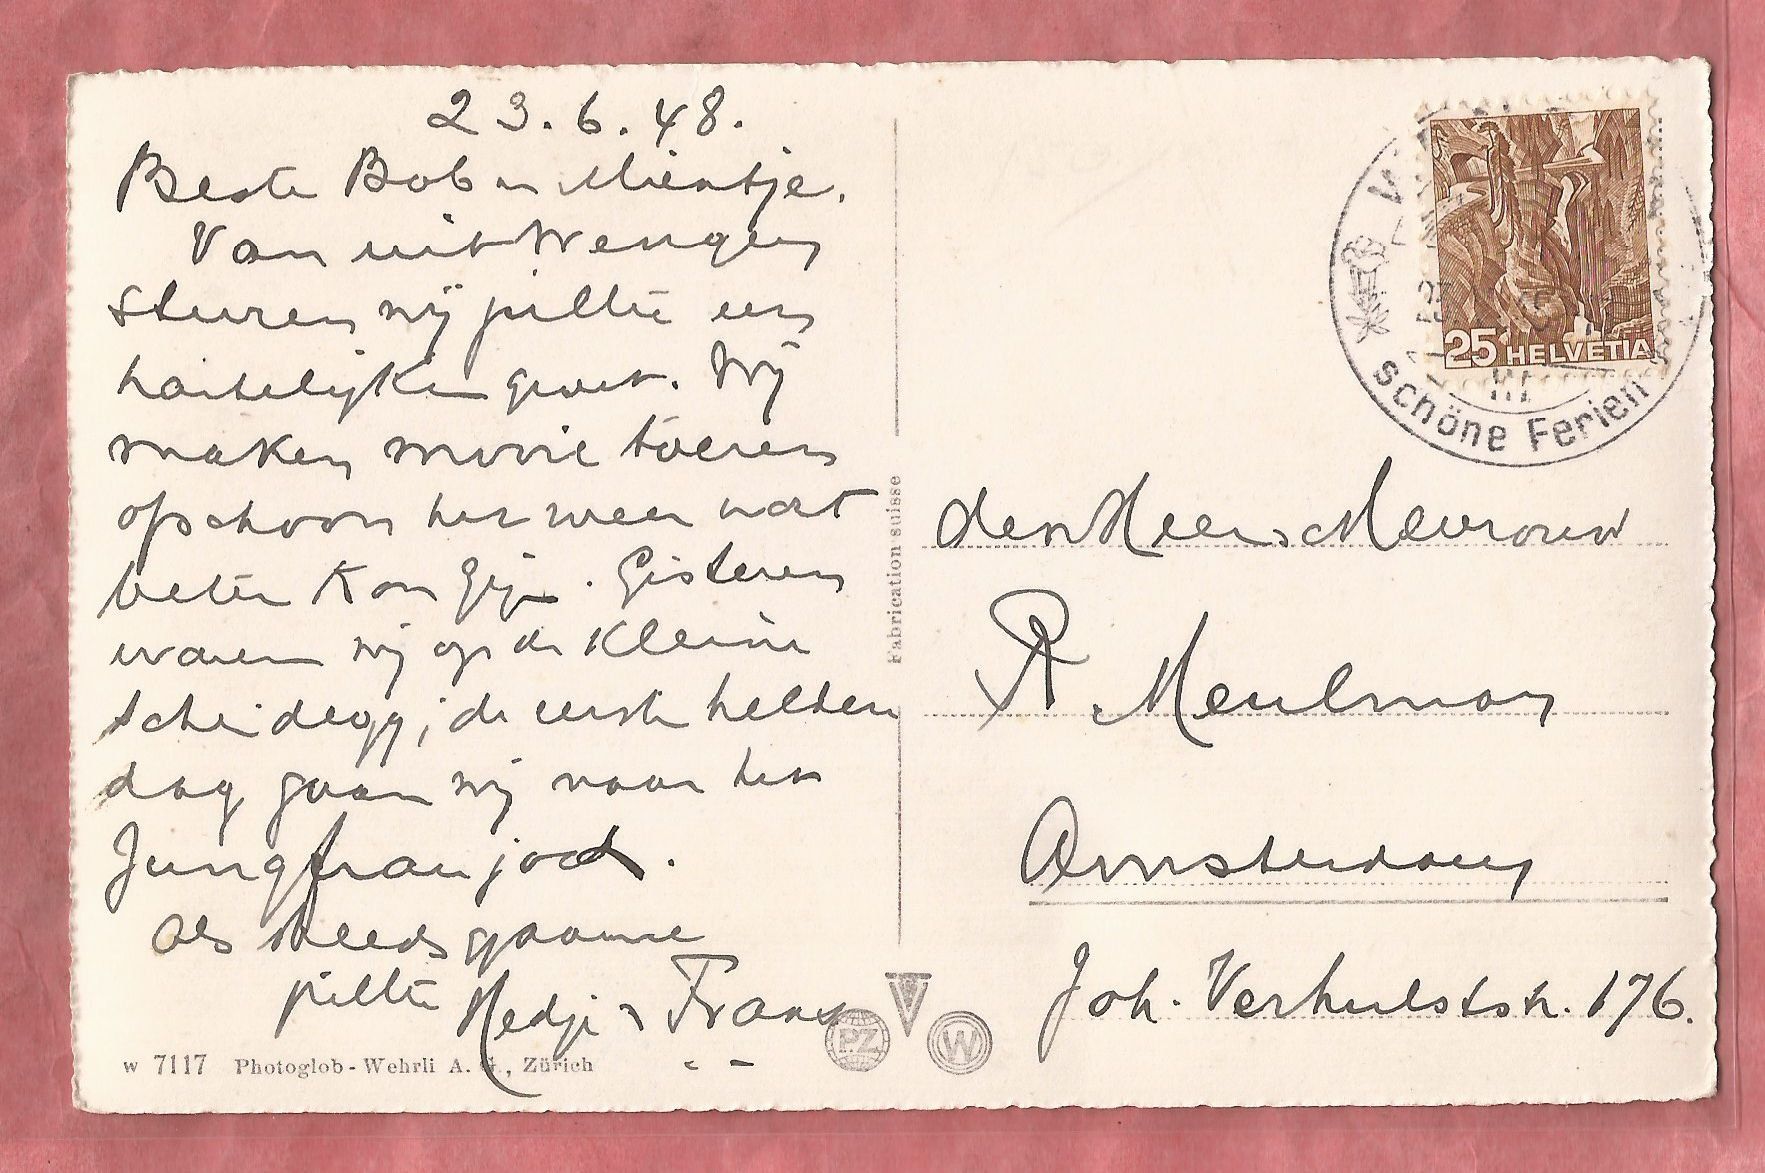 23.6.48.
Beste Bob en Mientje.
Van uit Wengen
sturen wij jullie een
hartelijken groet. Wij
maken mooie toeren
ofschoon het weer wat
beter kon zijn. Gisteren
waren wij op de Kleine
Scheidegg; de eerste heldere
dag gaan wij naar het
Jungfraujoch.
Als steeds gaarne
jullie Hedje en Frans
w 7117 Photoglob-Wehrli A. G., Zürich
Fabrication suisse
PZ
W
25 HELVETIA
Schöne Ferien
den Heer en Mevrouw
R. Meulman
Amsterdam
Joh. Verhulststr. 176.